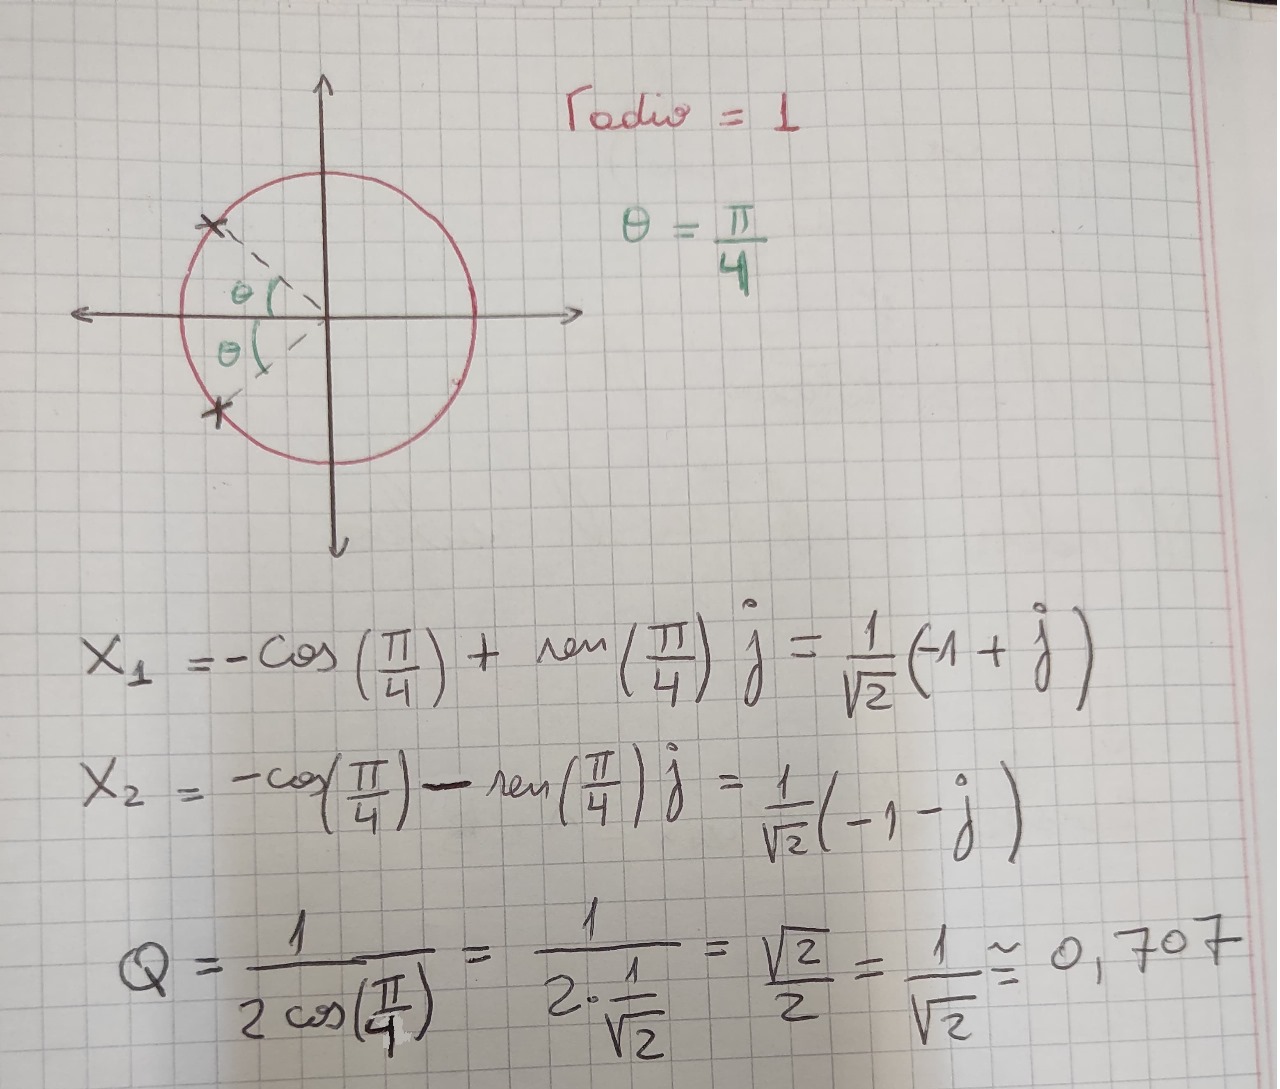 radio = 1
θ = π/4
θ
θ
X₁ = -cos(π/4) + sen(π/4) j = 1/√2 (-1 + j)
X₂ = -cos(π/4) - sen(π/4) j = 1/√2 (-1 - j)
Q = 1/(2 cos(π/4)) = 1/(2·1/√2) = √2/2 = 1/√2 ≃ 0,707